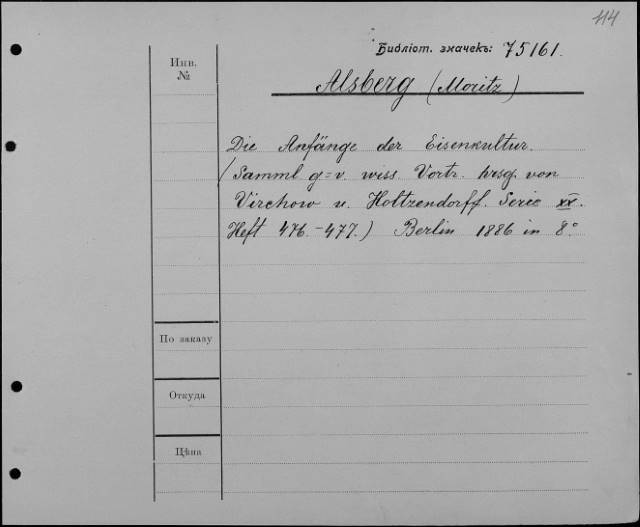 414
Библіот. значекъ: 75161.
Инв.
№
Alsberg (Moritz)
Die Anfänge der Eisenkultur.
(Samml g=v. wiss. Vortr. hrsg. von
Virchow u. Holtzendorff. Serie XX.
Heft 476.-477.) Berlin 1886 in 8°
По заказу
Откуда
Цѣна